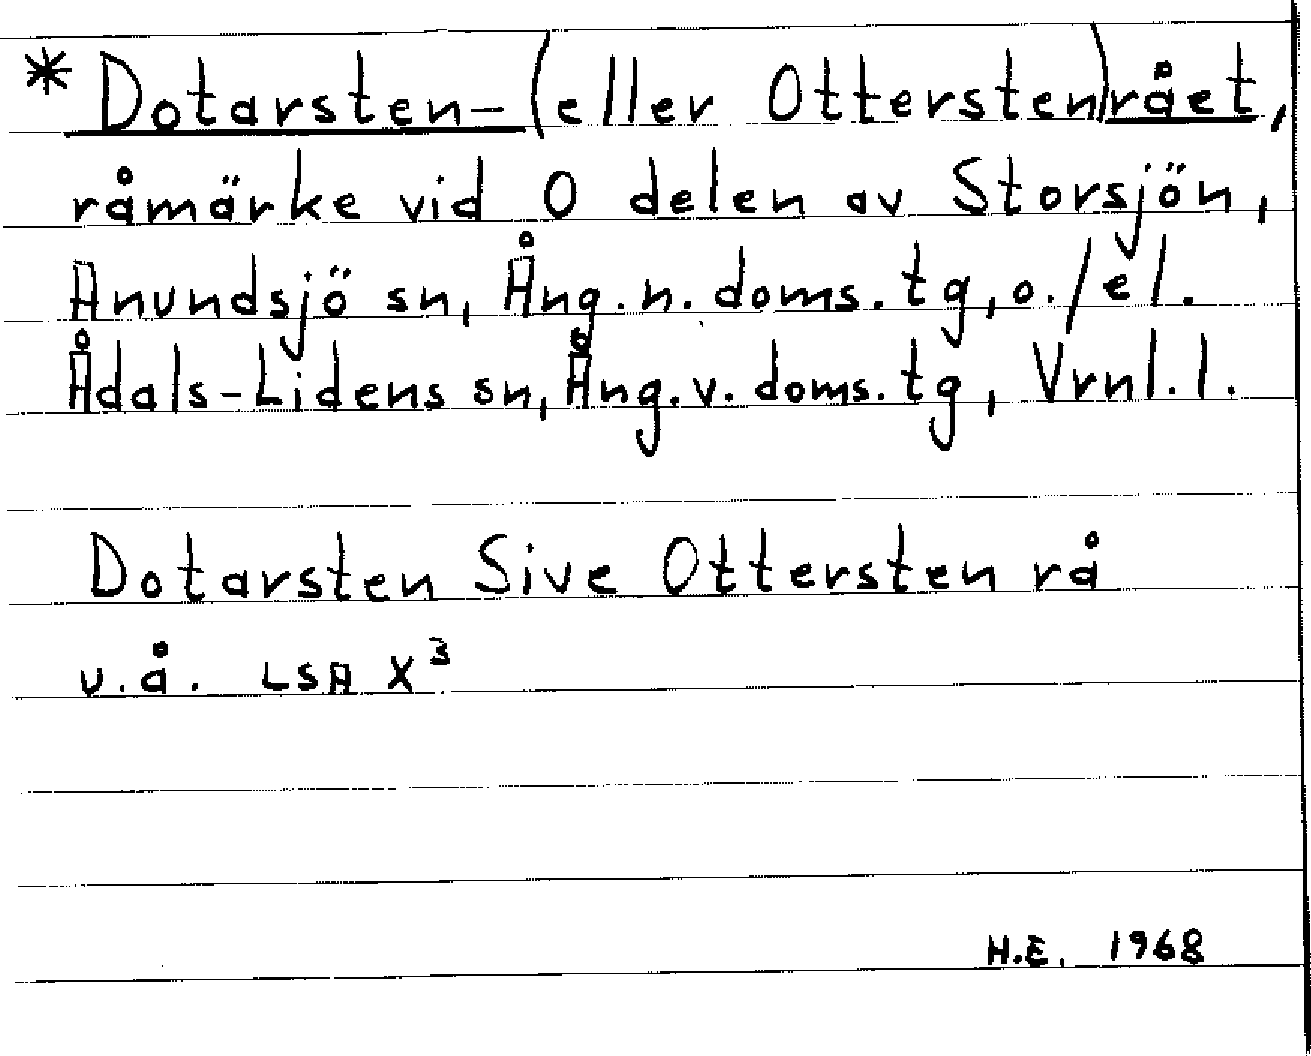 * Dotarsten-(eller Ottersten)rået,
råmärke vid O delen av Storsjön,
Anundsjö sn, Ång. n. doms. tg, o./el.
Ådals-Lidens sn, Ång. v. doms. tg, Vrnl. l.
Dotarsten Sive Ottersten rå
u.å. LSA X³
H.E. 1968